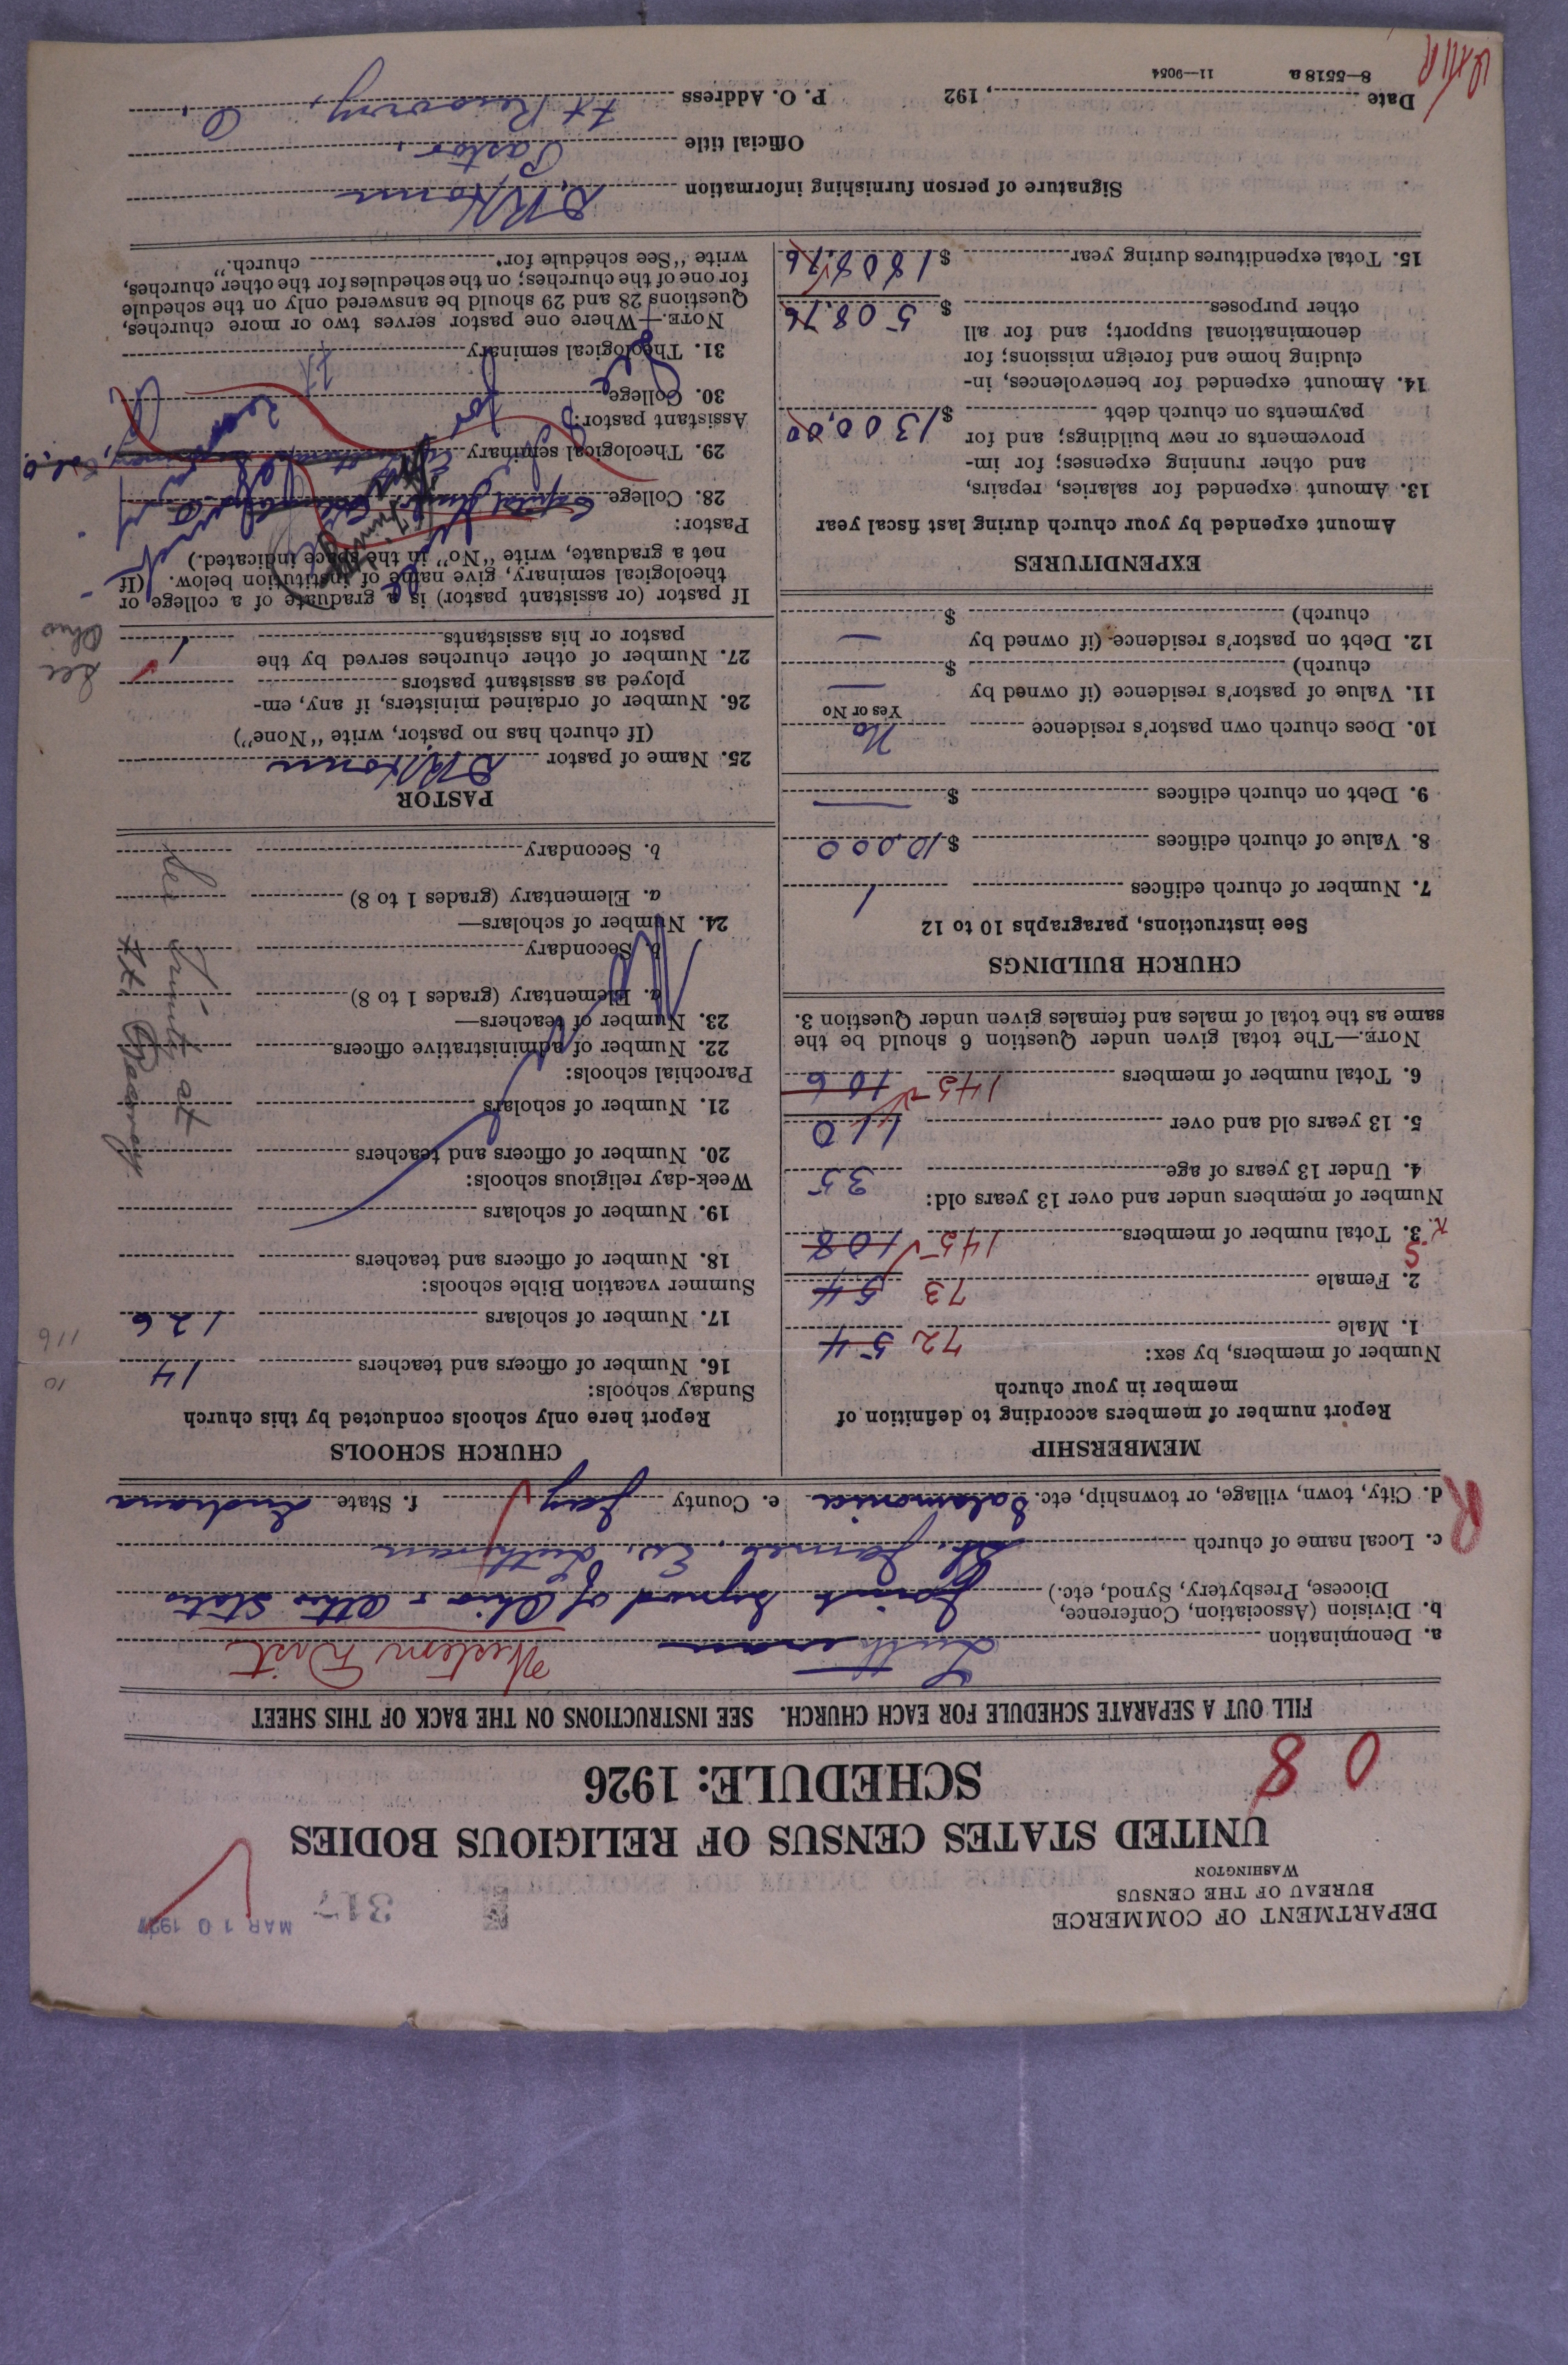 DEPARTMENT OF COMMERCE
BUREAU OF THE CENSUS
WASHINGTON
317
MAR 10 1927
UNITED STATES CENSUS OF RELIGIOUS BODIES
SCHEDULE: 1926
0 8
FILL OUT A SEPARATE SCHEDULE FOR EACH CHURCH. SEE INSTRUCTIONS ON THE BACK OF THIS SHEET
a. Denomination Lutheran Western Dist
b. Division (Association, Conference,
Diocese, Presbytery, Synod, etc.) Joint Synod of Ohio & Other States
c. Local name of church St. James Ev. Lutheran
d. City, town, village, or township, etc. Salamonia e. County Jay f. State Indiana
R
MEMBERSHIP
Report number of members according to definition of
member in your church
Number of members, by sex:
1. Male 72 54
2. Female 73 54
3. Total number of members 145 108
Number of members under and over 13 years old:
4. Under 13 years of age 35
5. 13 years old and over 110
6. Total number of members 145 106
NOTE.—The total given under Question 6 should be the
same as the total of males and females given under Question 3.
CHURCH BUILDINGS
See instructions, paragraphs 10 to 12
7. Number of church edifices 1
8. Value of church edifices $10,000
9. Debt on church edifices $ —
10. Does church own pastor's residence No
Yes or No
11. Value of pastor's residence (if owned by
church) $ —
12. Debt on pastor's residence (if owned by
church) $ —
EXPENDITURES
Amount expended by your church during last fiscal year
13. Amount expended for salaries, repairs,
and other running expenses; for im-
provements or new buildings; and for
payments on church debt $1300.00
14. Amount expended for benevolences, in-
cluding home and foreign missions; for
denominational support; and for all
other purposes $508.76
15. Total expenditures during year $1808.76
CHURCH SCHOOLS
Report here only schools conducted by this church
Sunday schools:
16. Number of officers and teachers 14 10
17. Number of scholars 126 116
Summer vacation Bible schools:
18. Number of officers and teachers
19. Number of scholars
Week-day religious schools:
20. Number of officers and teachers
21. Number of scholars
Parochial schools:
22. Number of administrative officers
23. Number of teachers—
a. Elementary (grades 1 to 8)
b. Secondary
24. Number of scholars—
a. Elementary (grades 1 to 8)
b. Secondary
PASTOR
25. Name of pastor
(If church has no pastor, write "None")
26. Number of ordained ministers, if any, em-
ployed as assistant pastors
27. Number of other churches served by the
pastor or his assistants 1
See
Ohio
If pastor (or assistant pastor) is a graduate of a college or
theological seminary, give name of institution below. (If
not a graduate, write "No" in the space indicated.)
Pastor:
28. College
29. Theological seminary
Assistant pastor:
30. College
31. Theological seminary
NOTE.—Where one pastor serves two or more churches,
Questions 28 and 29 should be answered only on the schedule
for one of the churches; on the schedules for the other churches,
write "See schedule for church."
Signature of person furnishing information
Official title Pastor
Date , 192 P. O. Address Ft Recovery, O
8—5518 a 11—9054